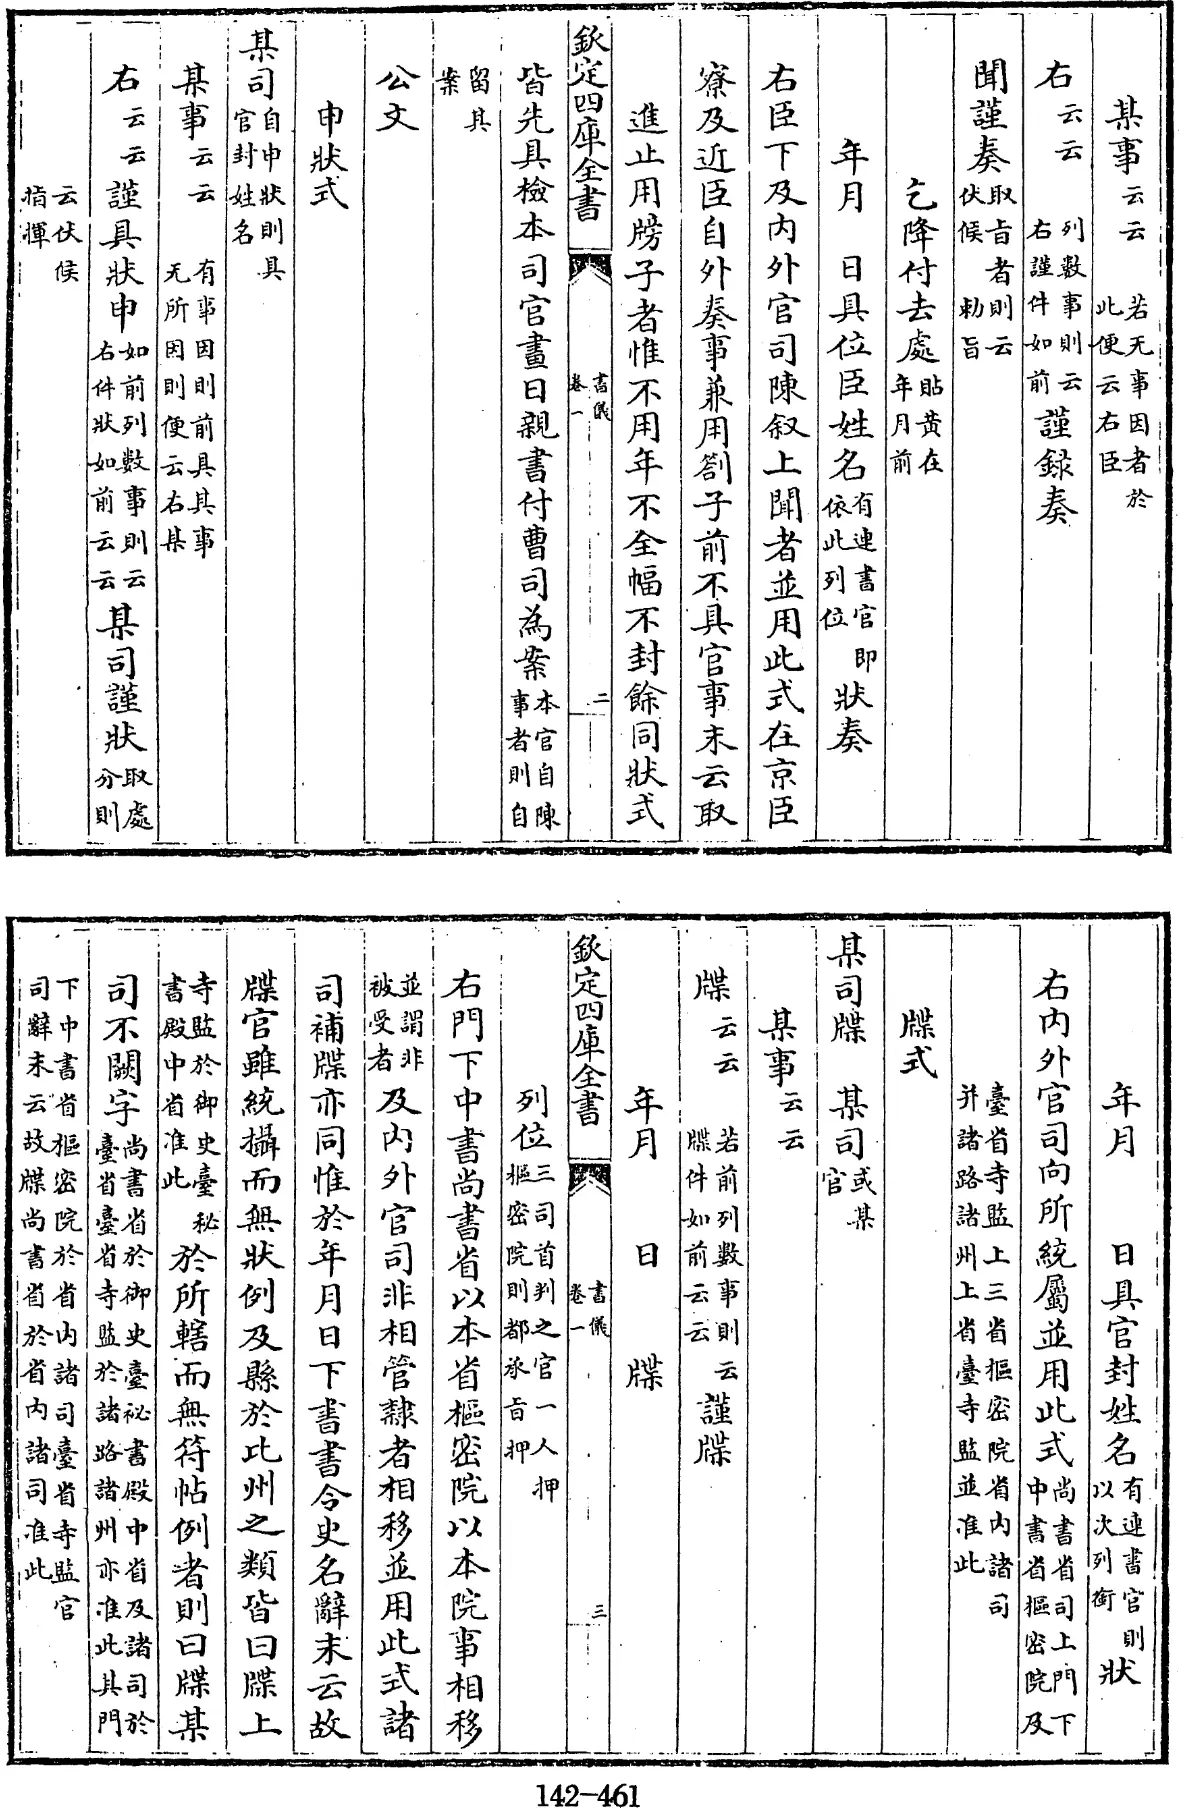 某事云云若无事因者於此便云右臣
右云云列數事則云右謹件如前謹録奏
聞謹奏取旨者則云伏候勅旨
乞降付去處貼黄在年月前
年月　日具位臣姓名有連書官即依此列位狀奏
右臣下及内外官司陳叙上聞者並用此式在京臣
寮及近臣自外奏事兼用劄子前不具官事末云取
進止用牓子者惟不用年不全幅不封餘同狀式
欽定四庫全書　書儀卷一　二
皆先具檢本司官畫日親書付曹司為案本官自陳事者則自
留其案
公文
申狀式
某司自申狀則具官封姓名
某事云云有事因則前具其事无所因則便云右某
右云云謹具狀申如前列數事則云右件狀如前云云某司謹狀取處分則
云伏候指揮
年月　日具官封姓名有連書官則以次列銜狀
右内外官司向所統屬並用此式尚書省司上門下中書省樞密院及
臺省寺監上三省樞密院省内諸司并諸路諸州上省臺寺監並准此
牒式
某司牒　某司或某官
某事云云
牒云云若前列數事則云牒件如前云云謹牒
年月　日　牒
欽定四庫全書　書儀卷一　三
列位三司首判之官一人押樞密院則都承旨押
右門下中書尚書省以本省樞密院以本院事相移
並謂非被受者及内外官司非相管隷者相移並用此式諸
司補牒亦同惟於年月日下書書令史名辭末云故
牒官雖統攝而無狀例及縣於比州之類皆曰牒上
寺監於御史臺秘書殿中省准此於所轄而無符帖例者則曰牒某
司不闕字尚書省於御史臺秘書殿中省及諸司於臺省臺省寺監於諸路諸州亦准此其門
下中書省樞密院於省内諸司臺省寺監官司辭末云故牒尚書省於省内諸司准此
142-461